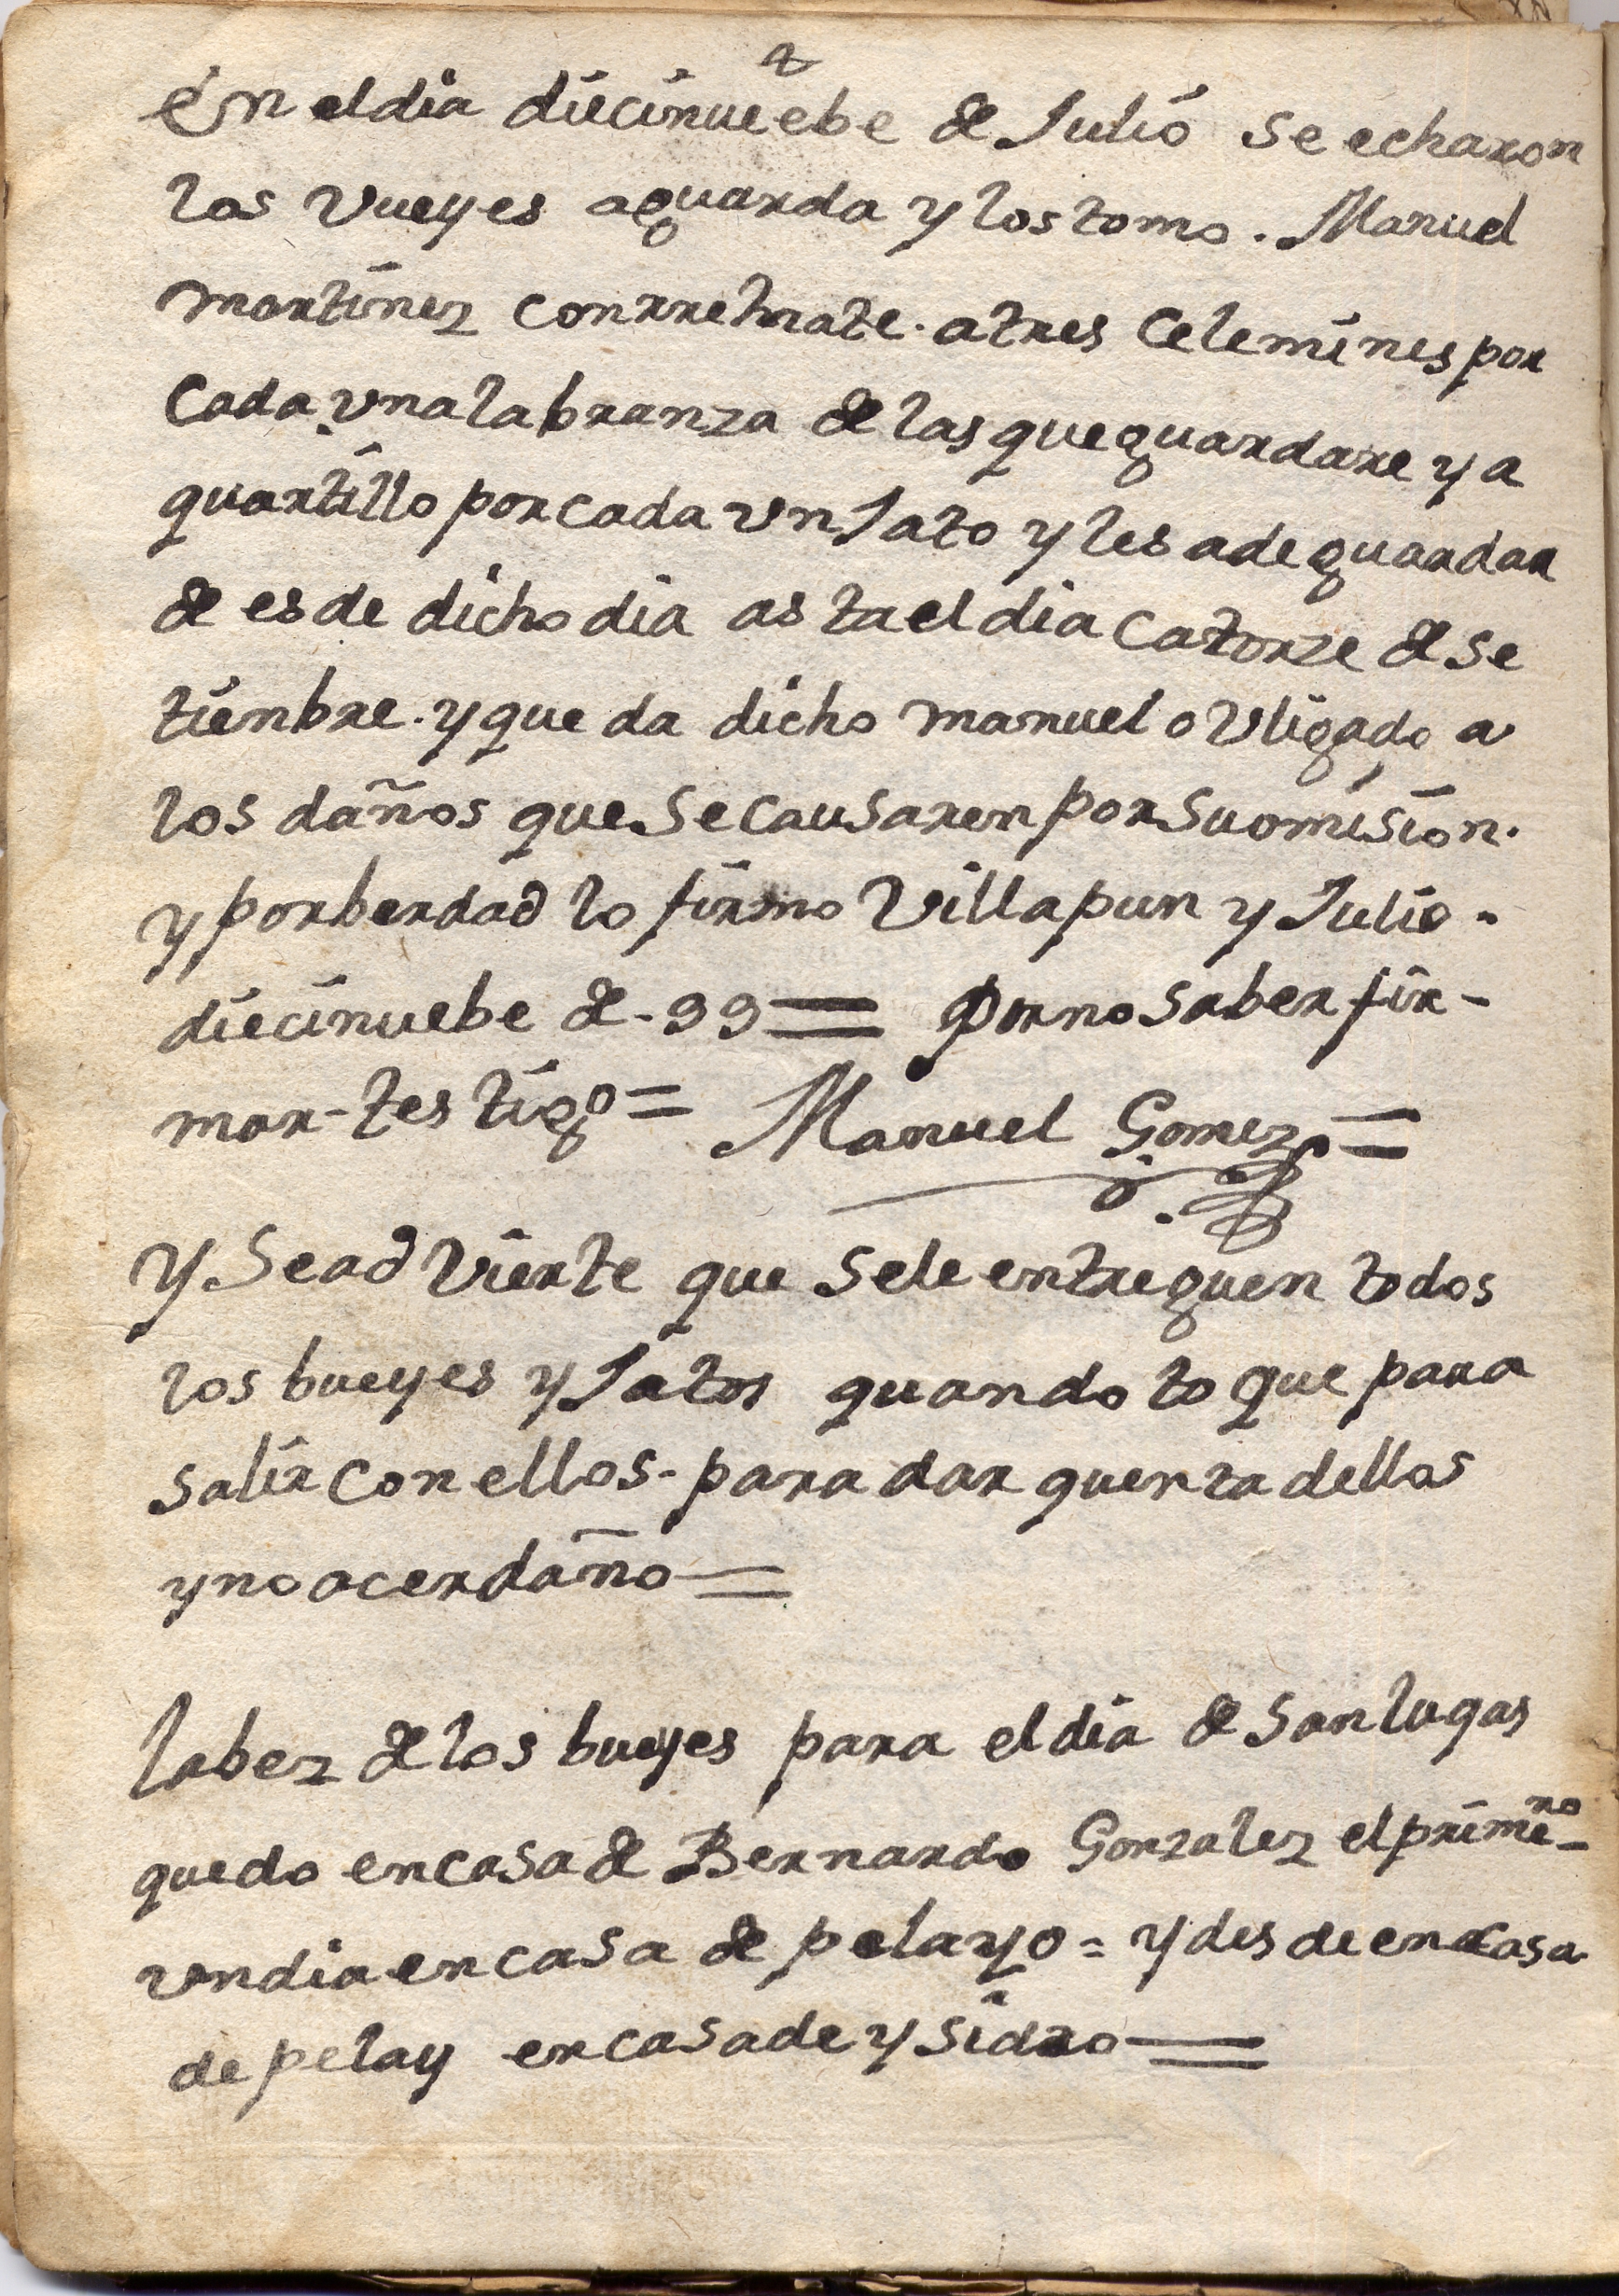 En el dia diecinuebe de Julio se echaron
los vueyes aguarda y los tomo. Manuel
martinez con rremate. a tres celemines por
cada vna labranza de las que guardare y a
quartillo por cada vn Jato y les a de guardar
de esde dicho dia asta el dia catorze de se
tienbre. y que da dicho manuel ovligado a
los daños que se causaren por su omision.
y por berdad lo firmo Villapun y Julio -
diecinuebe de - 99 = Por no saber fir-
mar - testigo = Manuel Gomez =
Y se advierte que se le entreguen todos
los bueyes y Jatos quando toque para
salir con ellos - para dar quenta dellos
y no acer daño =
la bez de los bueyes para el dia de san lugas
quedo en casa de Bernardo Gonzalez el primero -
vn dia en casa de pelayo = y desde en casa
de pelay en casa de ysidro =